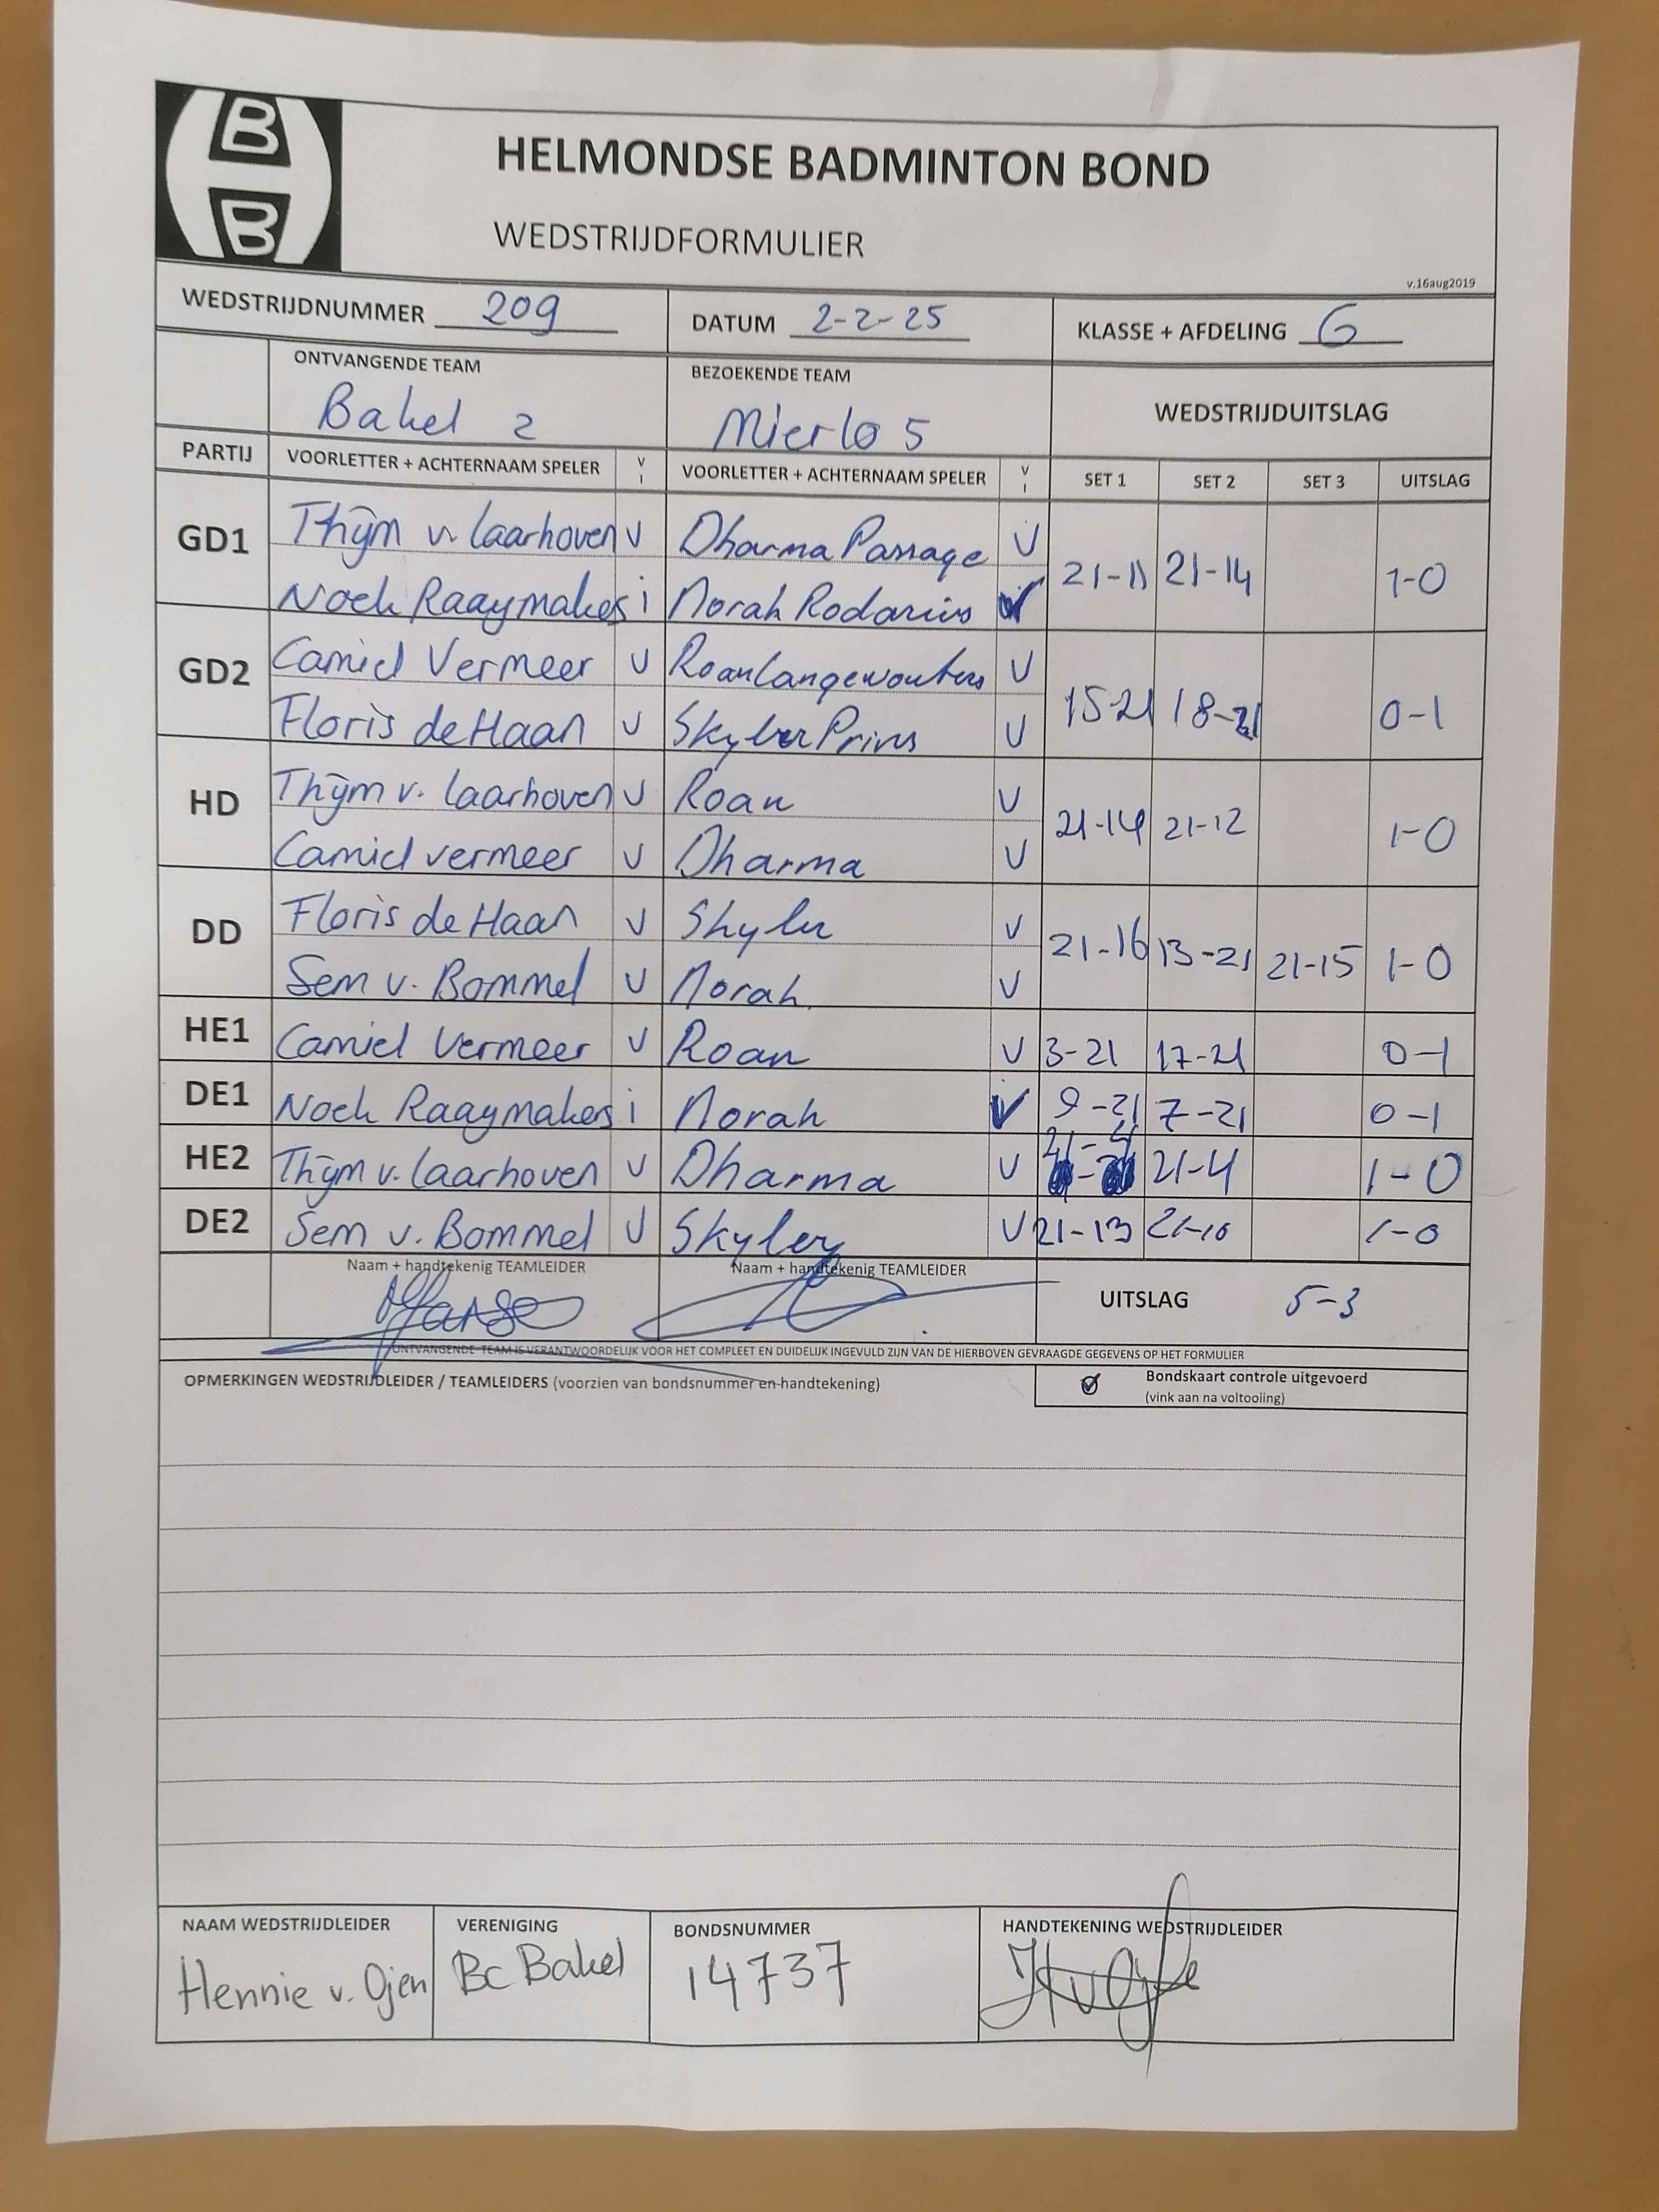 B
B
HELMONDSE BADMINTON BOND
WEDSTRIJDFORMULIER
v.16aug2019
WEDSTRIJDNUMMER 209 DATUM 2-2-25 KLASSE + AFDELING G
ONTVANGENDE TEAM BEZOEKENDE TEAM WEDSTRIJDUITSLAG
Bakel 2 Mierlo 5
PARTIJ VOORLETTER + ACHTERNAAM SPELER V I VOORLETTER + ACHTERNAAM SPELER V I SET 1 SET 2 SET 3 UITSLAG
GD1 Thijm v. Laarhoven V Dharma Passage V 21-11 21-14 1-0
Noek Raaymakers i Norah Rodarius V
GD2 Camiel Vermeer V Roan Langewouters V 15-21 18-21 0-1
Floris de Haan V Skyler Prins V
HD Thijm v. Laarhoven V Roan V 21-14 21-12 1-0
Camiel Vermeer V Dharma V
DD Floris de Haan V Skyler V 21-16 13-21 21-15 1-0
Sem v. Bommel V Norah V
HE1 Camiel Vermeer V Roan V 3-21 17-21 0-1
DE1 Noek Raaymakers i Norah V 9-21 7-21 0-1
HE2 Thijm v. Laarhoven V Dharma V 21-4 1-0
DE2 Sem v. Bommel V Skyler V 21-13 21-10 1-0
Naam + handtekenig TEAMLEIDER Naam + handtekenig TEAMLEIDER
UITSLAG 5-3
ONTVANGENDE TEAM IS VERANTWOORDELIJK VOOR HET COMPLEET EN DUIDELIJK INGEVULD ZIJN VAN DE HIERBOVEN GEVRAAGDE GEGEVENS OP HET FORMULIER
OPMERKINGEN WEDSTRIJDLEIDER / TEAMLEIDERS (voorzien van bondsnummer en handtekening) Bondskaart controle uitgevoerd
(vink aan na voltooling)
NAAM WEDSTRIJDLEIDER VERENIGING BONDSNUMMER HANDTEKENING WEDSTRIJDLEIDER
Hennie v. Ojen BC Bakel 14737